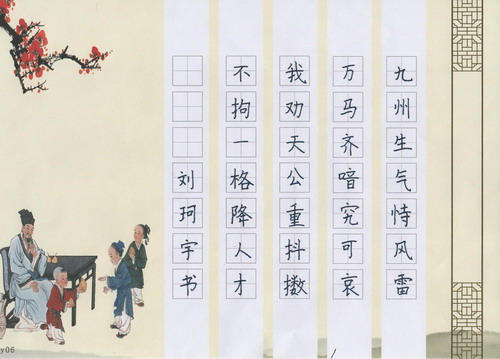 九州生气恃风雷
万马齐喑究可哀
我劝天公重抖擞
不拘一格降人才
刘珂宇书
y06